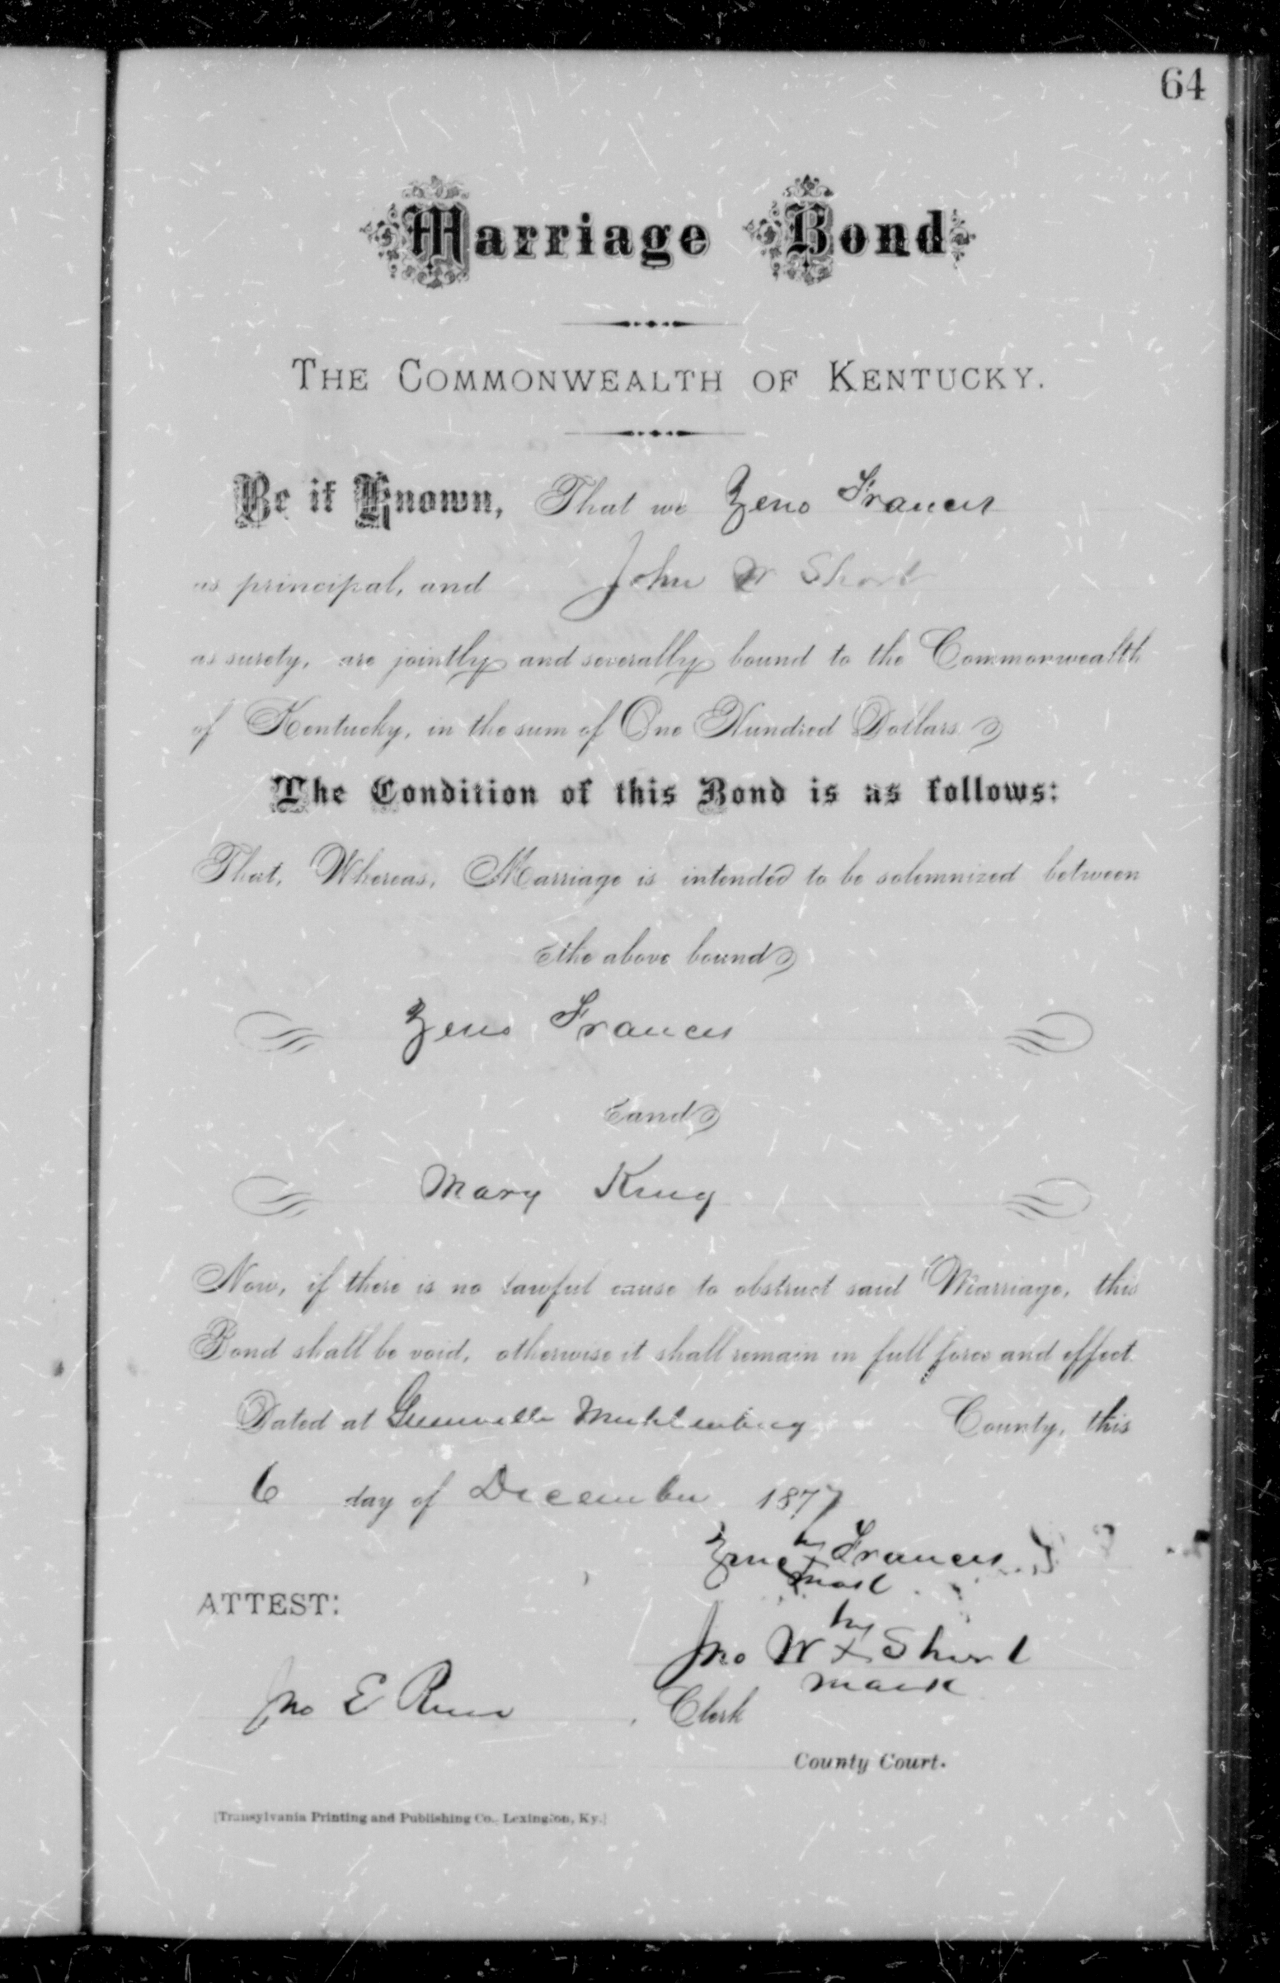 64
Marriage Bond
THE COMMONWEALTH OF KENTUCKY.
Be it Known, That we Zeno Francis
as principal, and John W Short
as surety, are jointly and severally bound to the Commonwealth
of Kentucky, in the sum of One Hundred Dollars.
The Condition of this Bond is as follows:
That, Whereas, Marriage is intended to be solemnized between
the above bound
Zeno Francis
and
Mary King
Now, if there is no lawful cause to obstruct said Marriage, this
Bond shall be void, otherwise it shall remain in full force and effect.
Dated at Greenville Muhlenberg County, this
6 day of December 1877
his
Zeno x Francis
mark
ATTEST:
his
Jno W x Short
mark
Jno E , Clerk
County Court.
[Transylvania Printing and Publishing Co., Lexington, Ky.]